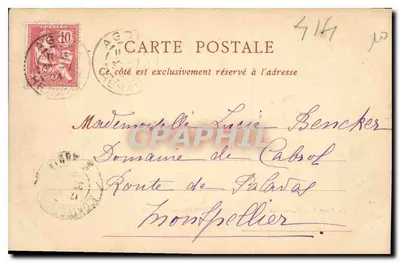 414
CARTE POSTALE
Ce côté est exclusivement réservé à l'adresse
10
AGD
Mademoiselle Lucie Bencker
CPAPHIL
Domaine de Cabrol
Route de Palavas
Montpellier